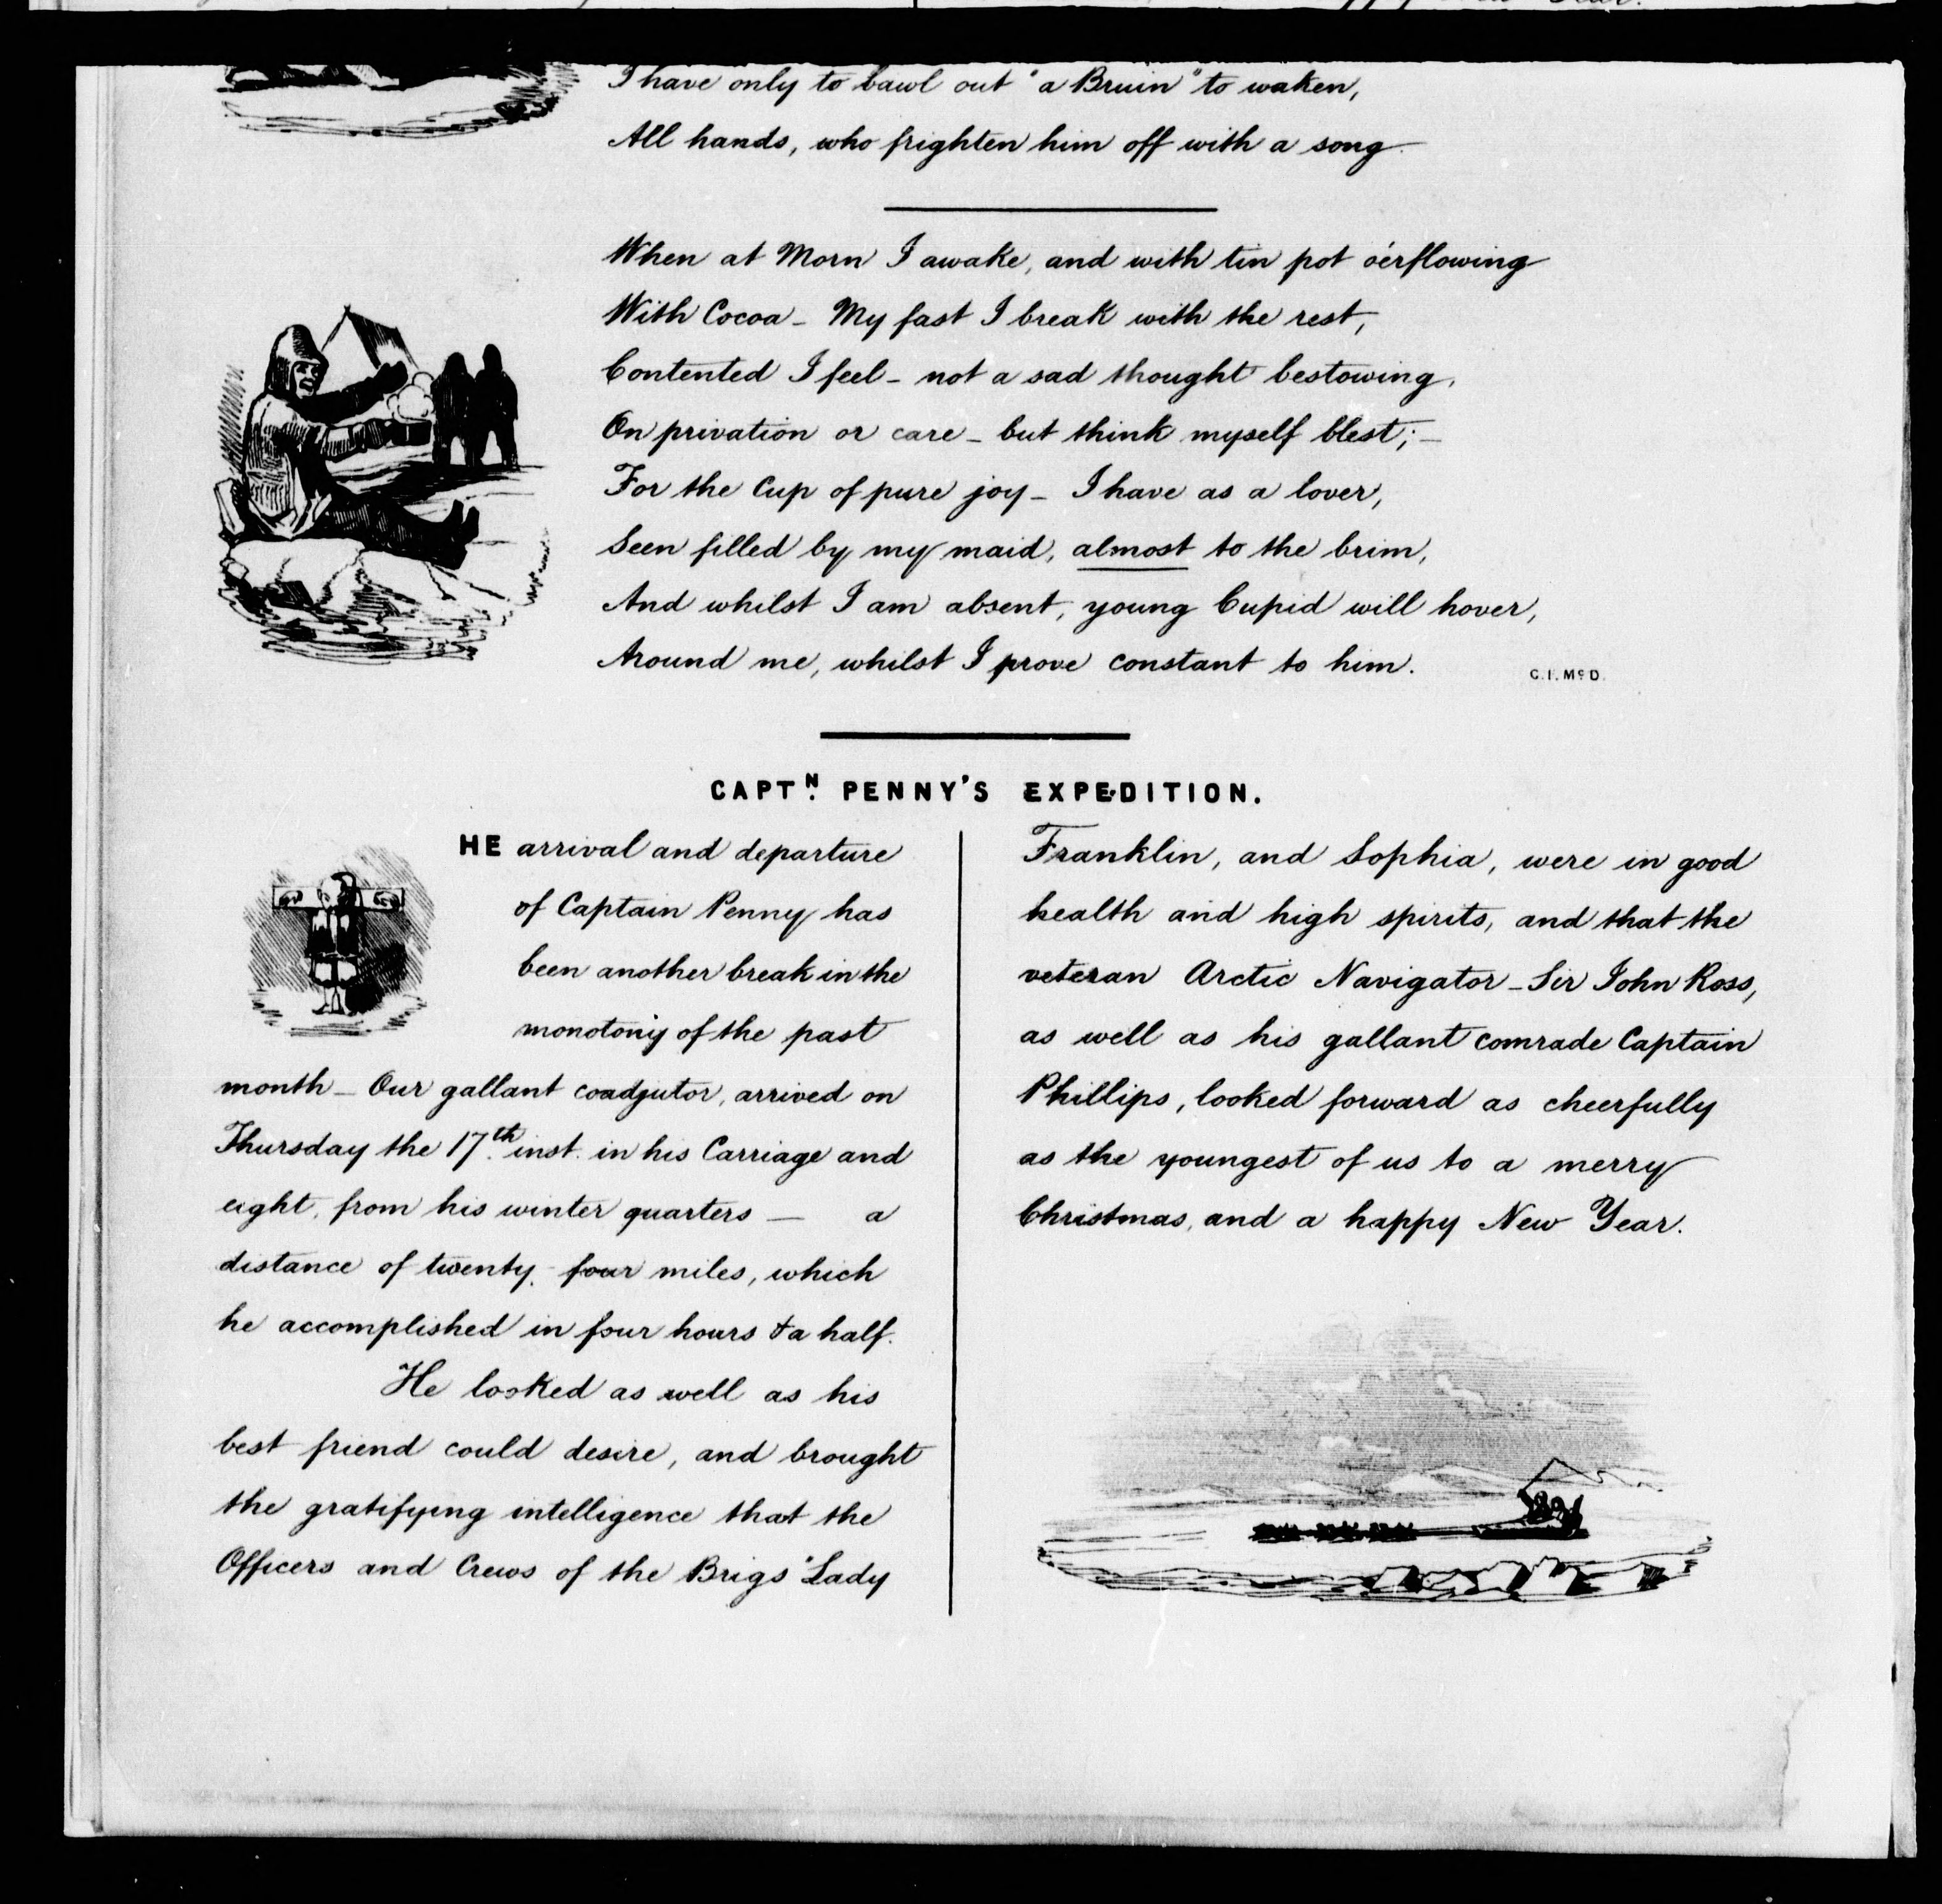 I have only to bawl out "a Bruin" to waken,
All hands, who frighten him off with a song.
When at Morn I awake, and with tin pot o'erflowing
With Cocoa - My fast I break with the rest,
Contented I feel - not a sad thought bestowing,
On privation or care - but think myself blest; -
For the Cup of pure joy - I have as a lover,
Seen filled by my maid, almost to the brim,
And whilst I am absent, young Cupid will hover,
Around me, whilst I prove constant to him.
G.F. McD.
CAPTN. PENNY'S EXPEDITION.
HE arrival and departure
of Captain Penny has
been another break in the
monotony of the past
month - Our gallant coadjutor, arrived on
Thursday the 17th. inst. in his Carriage and
eight, from his winter quarters — a
distance of twenty-four miles, which
he accomplished in four hours & a half.
He looked as well as his
best friend could desire, and brought
the gratifying intelligence that the
Officers and Crews of the Brigs "Lady
Franklin, and Sophia, were in good
health and high spirits, and that the
veteran Arctic Navigator - Sir John Ross,
as well as his gallant comrade Captain
Phillips, looked forward as cheerfully
as the youngest of us to a merry
Christmas, and a happy New Year.